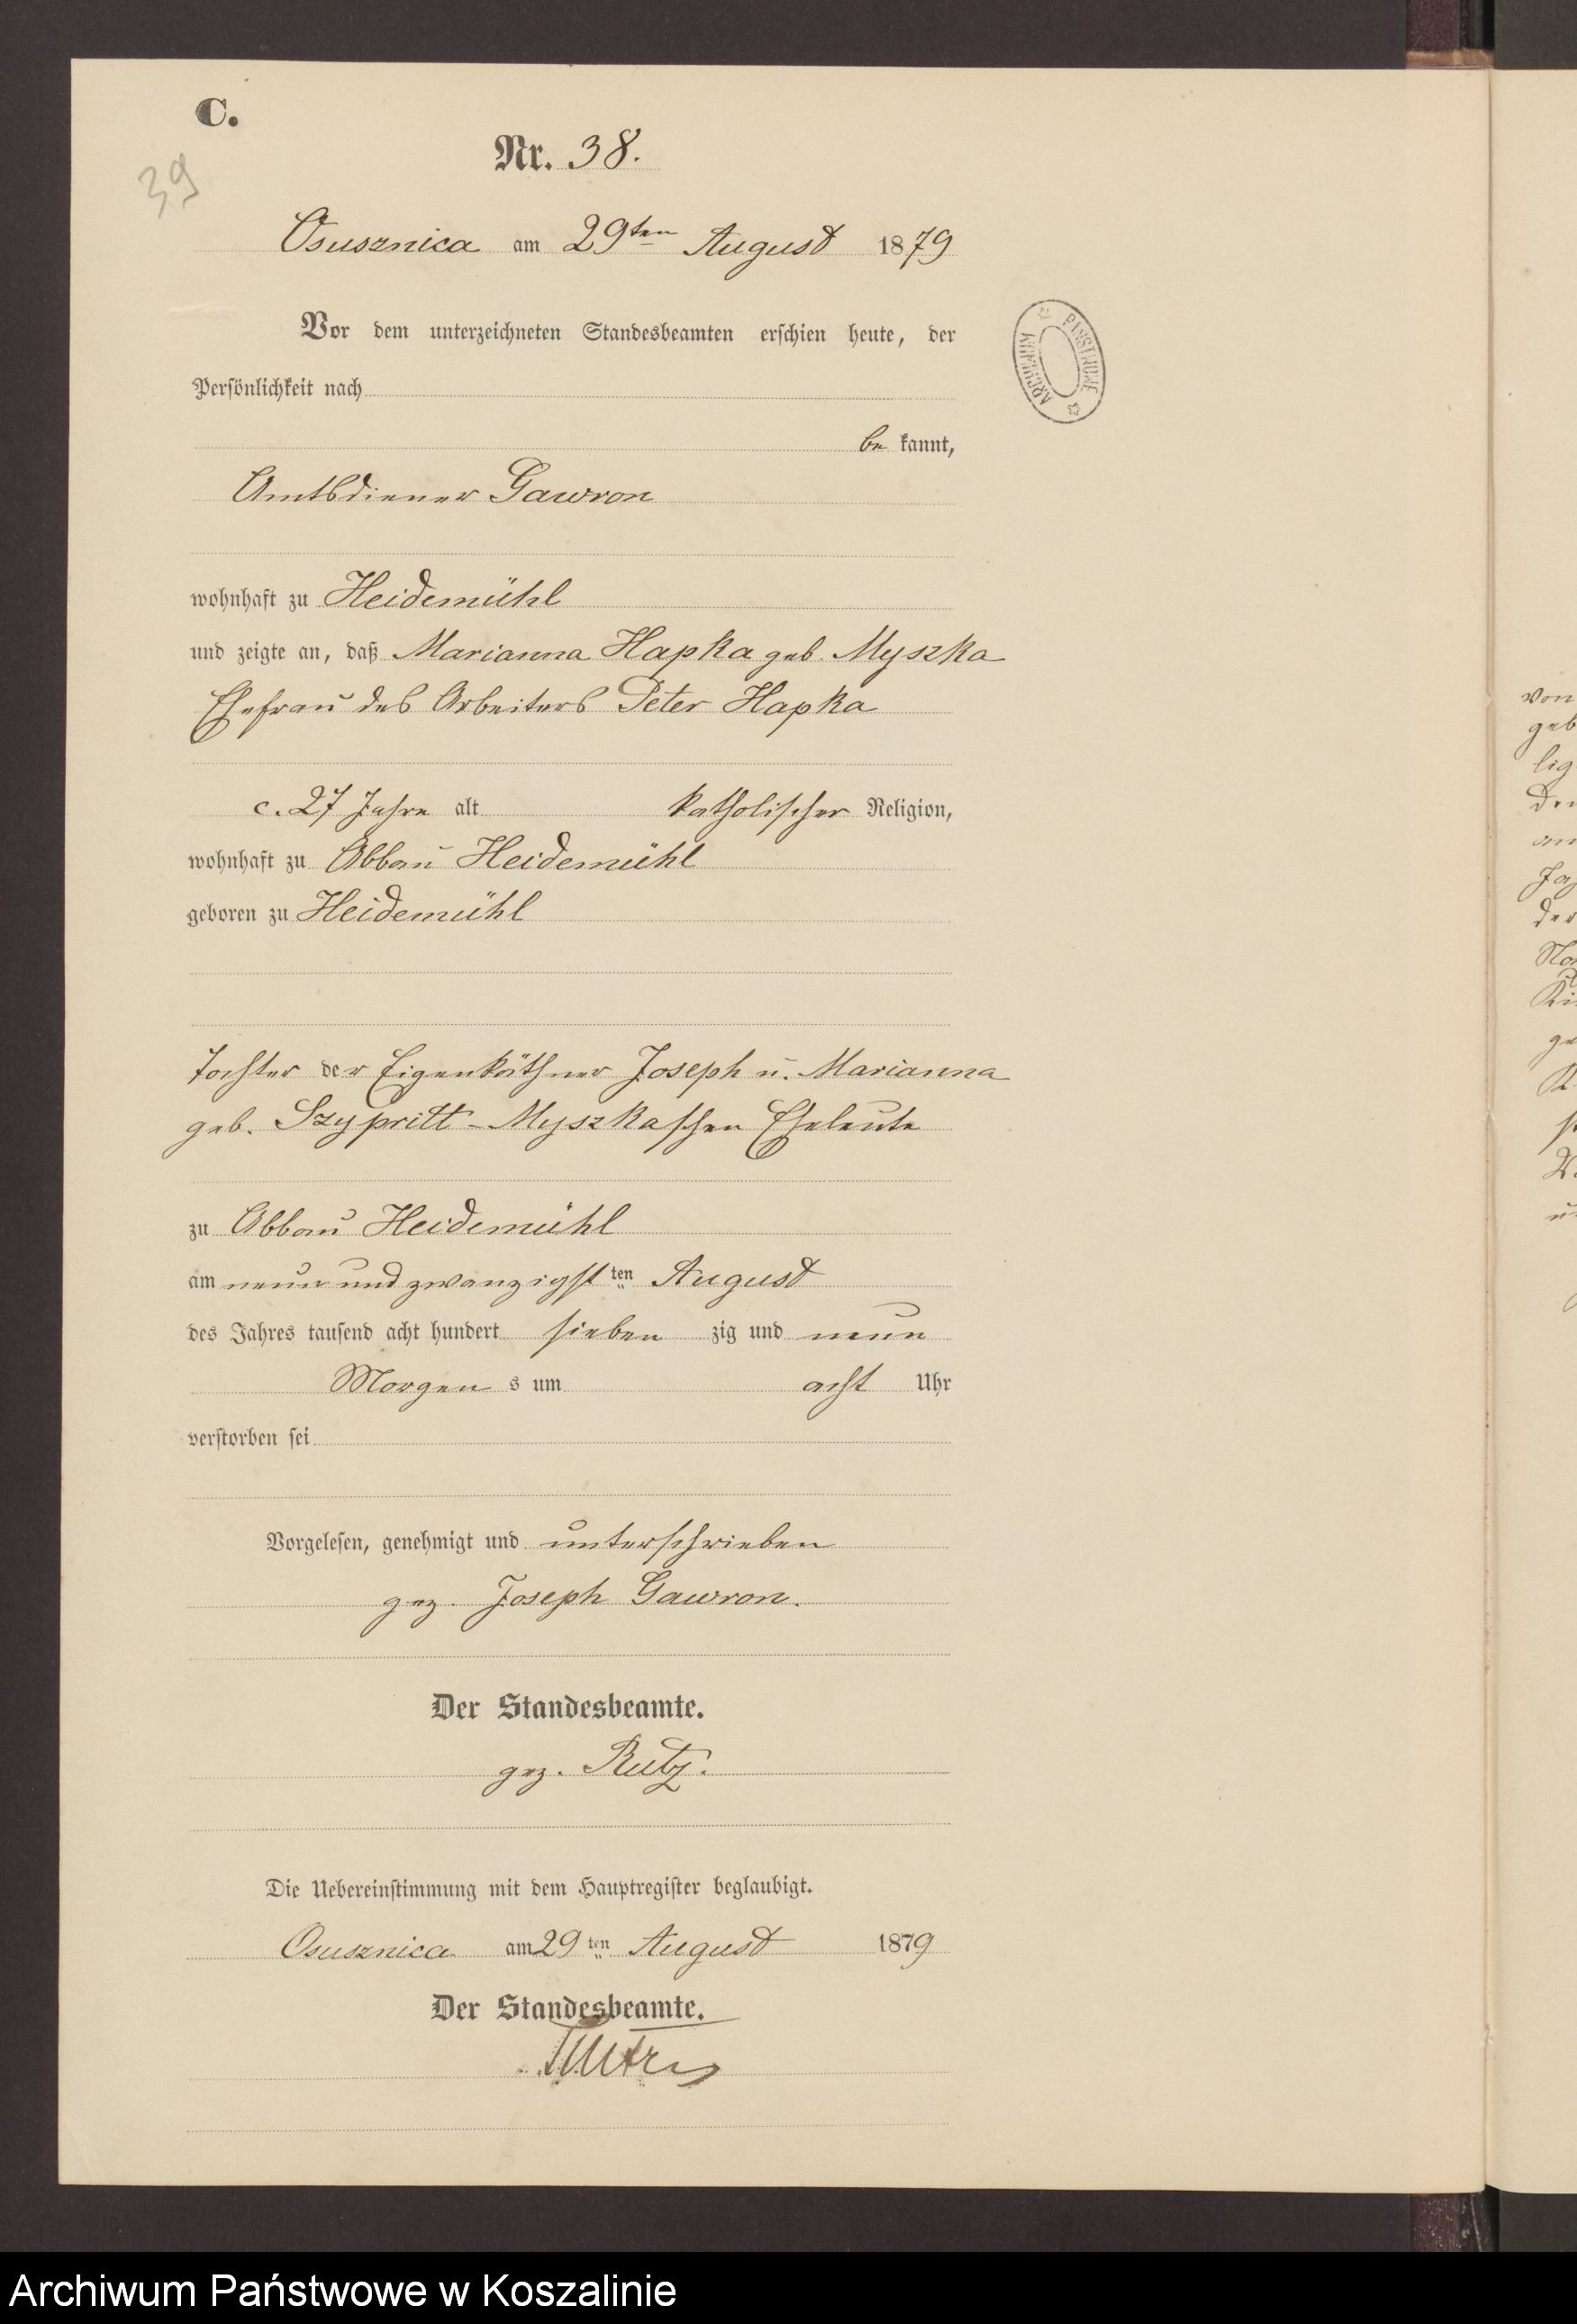 C.
Nr. 38.
39
Osusznica am 29ten August 1879
Vor dem unterzeichneten Standesbeamten erschien heute, der
Persönlichkeit nach
be kannt,
Amtsdiener Gawron
wohnhaft zu Heidemühl
und zeigte an, daß Marianna Hapka geb. Myszka
Ehefrau des Arbeiters Peter Hapka
c. 27 Jahre alt katholischer Religion,
wohnhaft zu Abbau Heidemühl
geboren zu Heidemühl
Tochter der Eigenkäthner Joseph u. Marianna
geb. Szypritt-Myszkaschen Eheleute
zu Abbau Heidemühl
am neun und zwanzigsten August
des Jahres tausend acht hundert sieben zig und neun
Morgen s um acht Uhr
verstorben sei
Vorgelesen, genehmigt und unterschrieben
gez. Joseph Gawron.
Der Standesbeamte.
gez. Rutz.
Die Uebereinstimmung mit dem Hauptregister beglaubigt.
Osusznica am 29ten August 1879
Der Standesbeamte.
ARCHIWUM PAŃSTWOWE
von
geb
lig
der
Archiwum Państwowe w Koszalinie